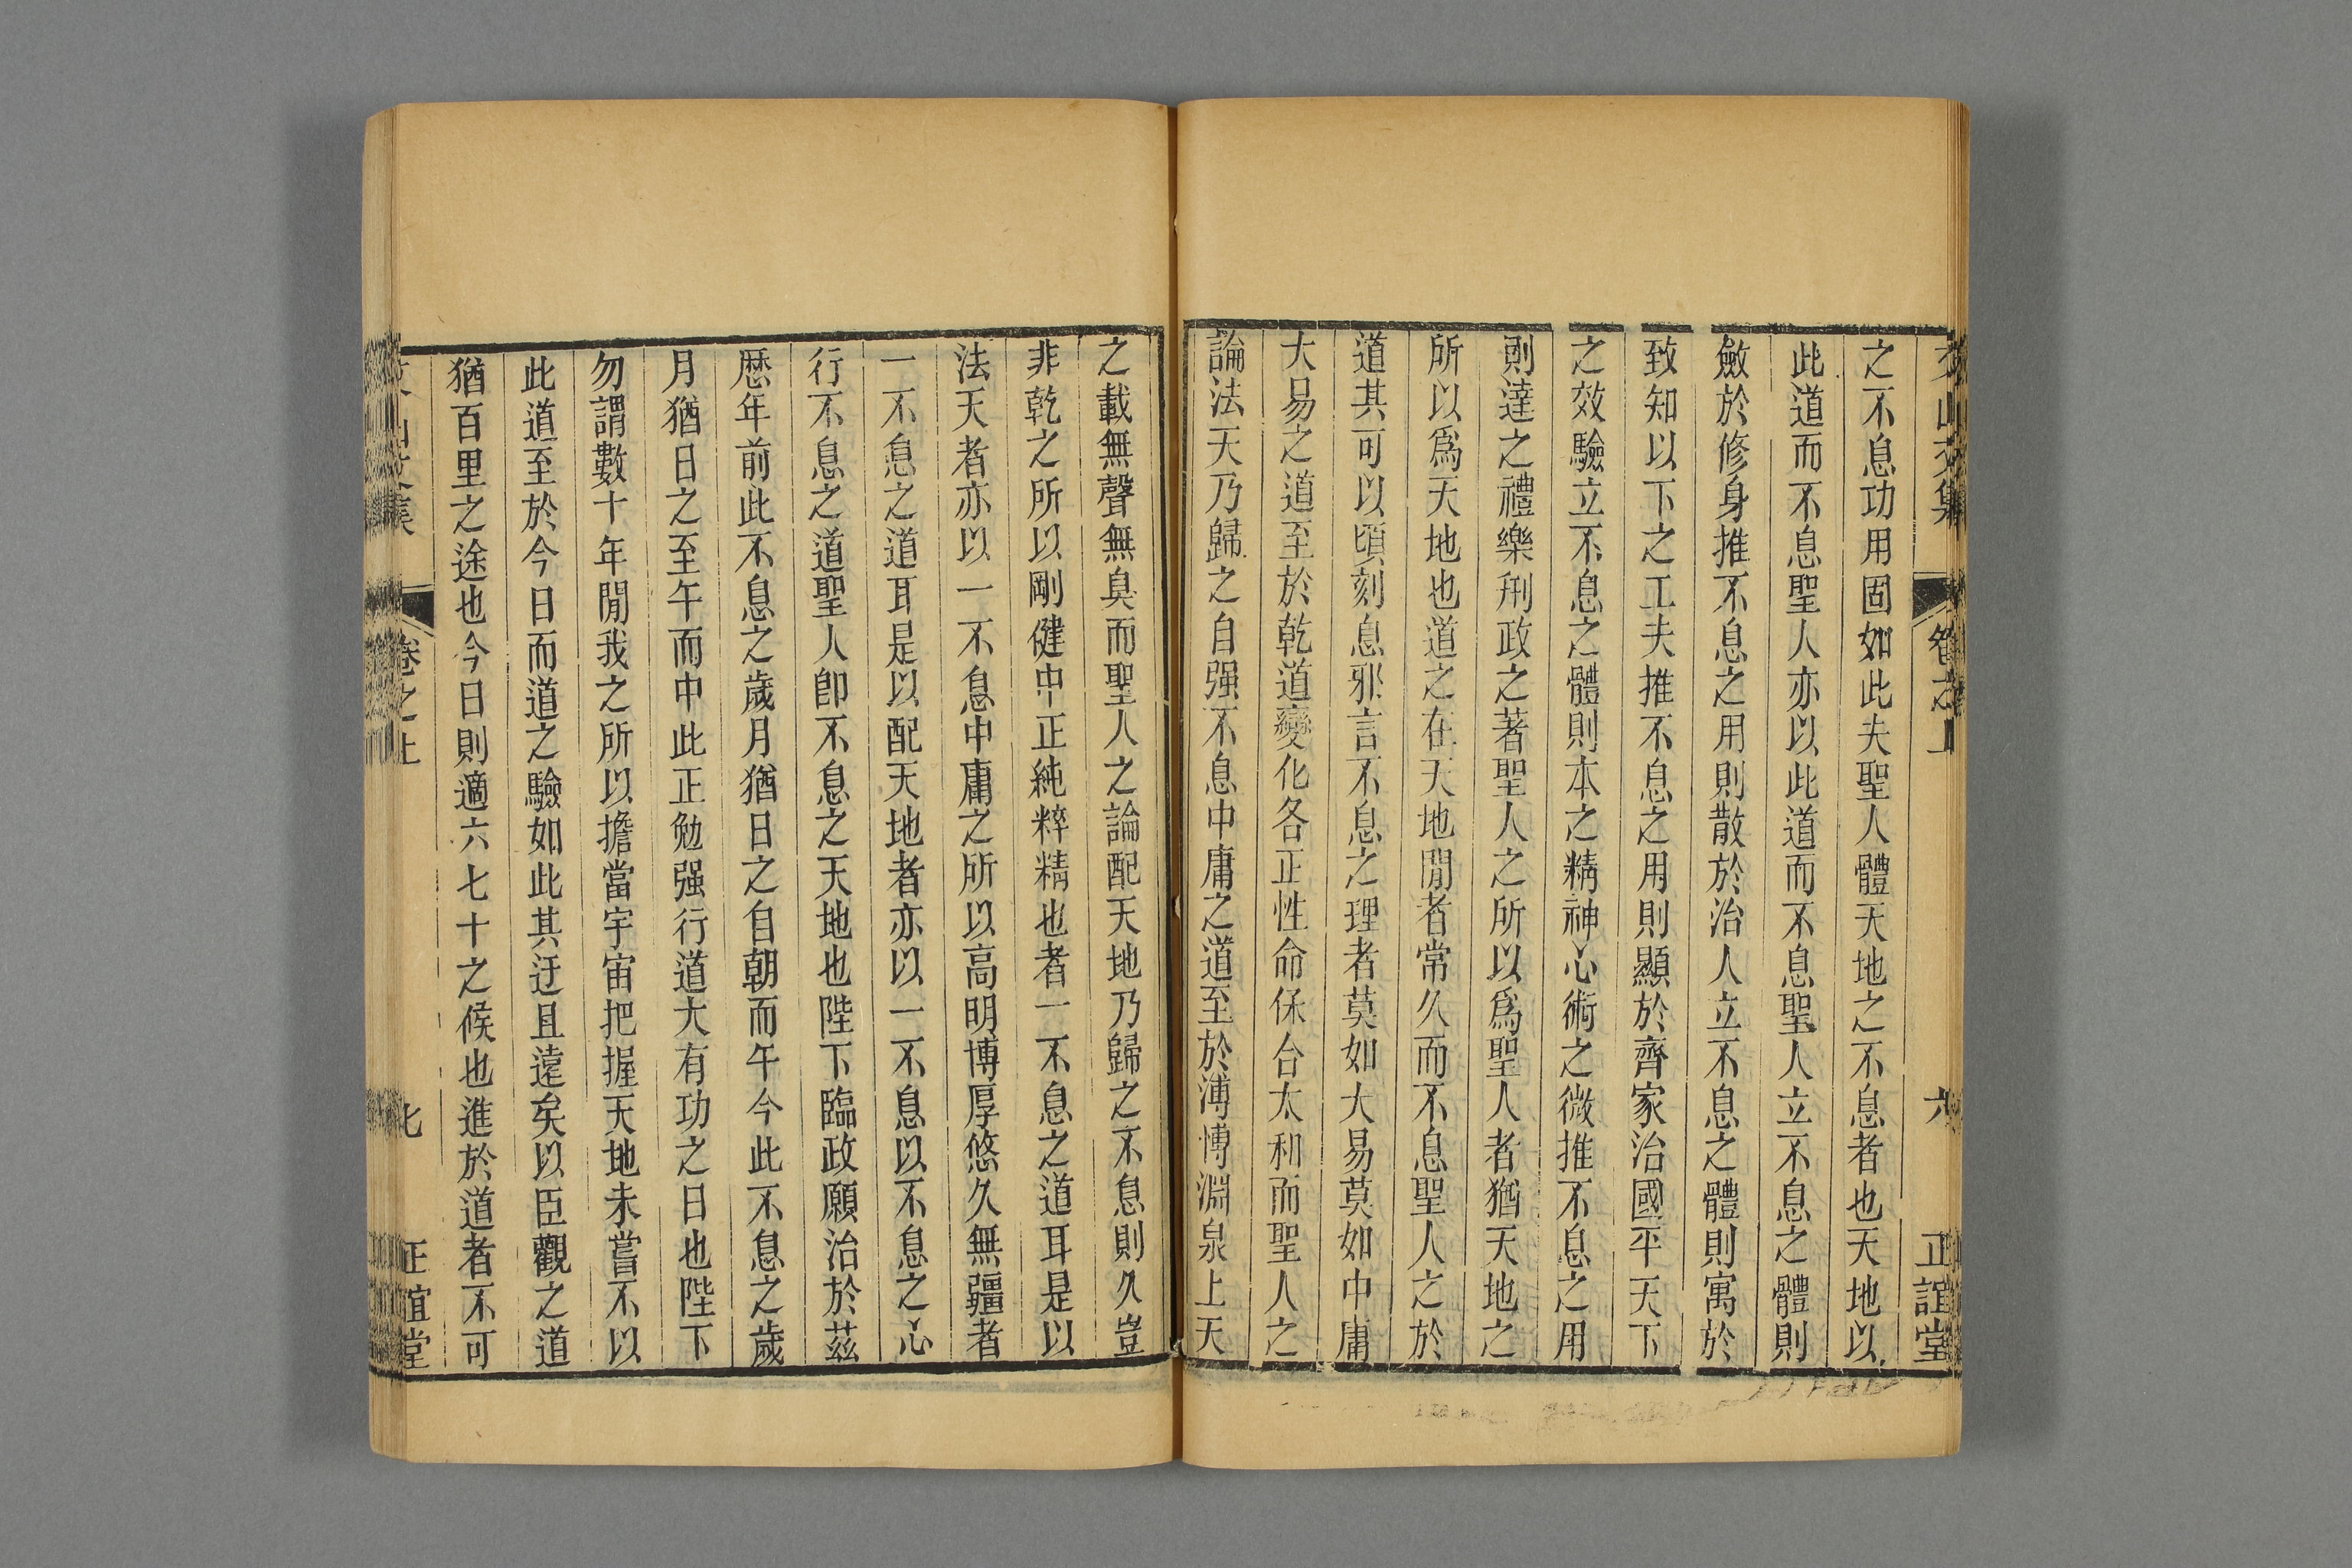 文山文集　卷之上　六　正誼堂
之不息功用固如此夫聖人體天地之不息者也天地以
此道而不息聖人亦以此道而不息聖人立不息之體則
斂於修身推不息之用則散於治人立不息之體則寓於
致知以下之工夫推不息之用則顯於齊家治國平天下
之效驗立不息之體則本之精神心術之微推不息之用
則達之禮樂刑政之著聖人之所以爲聖人者猶天地之
所以爲天地也道之在天地閒者常久而不息聖人之於
道其可以頃刻息邪言不息之理者莫如大易莫如中庸
大易之道至於乾道變化各正性命保合太和而聖人之
論法天乃歸之自强不息中庸之道至於溥博淵泉上天
之載無聲無臭而聖人之論配天地乃歸之不息則久豈
非乾之所以剛健中正純粹精也者一不息之道耳是以
法天者亦以一不息中庸之所以高明博厚悠久無疆者
一不息之道耳是以配天地者亦以一不息以不息之心
行不息之道聖人卽不息之天地也陛下臨政願治於茲
歷年前此不息之歲月猶日之自朝而午今此不息之歲
月猶日之至午而中此正勉强行道大有功之日也陛下
勿謂數十年閒我之所以擔當宇宙把握天地未嘗不以
此道至於今日而道之驗如此其迂且遠矣以臣觀之道
猶百里之途也今日則適六七十之候也進於道者不可
文山文集　卷之上　七　正誼堂